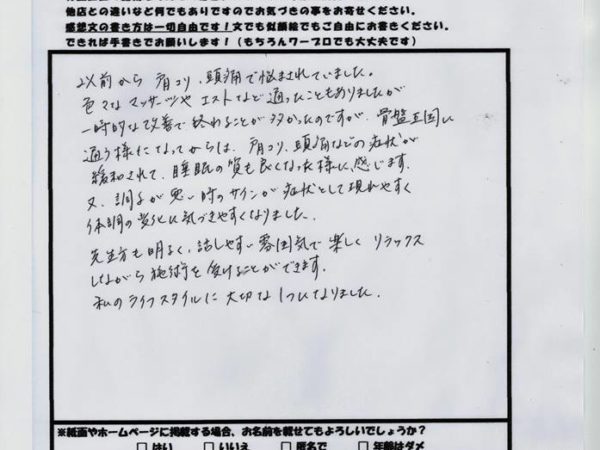 他店との違いなど何でもありですのでお気づきの事をお寄せください。
感想文の書き方は一切自由です！文でも似顔絵でもご自由にお書きください。
できれば手書きでお願いします！（もちろんワープロでも大丈夫です）
以前から肩コリ、頭痛で悩まされていました。
色々なマッサージやエステなど通ったこともありましたが
一時的な改善で終わることが多かったのですが、骨盤王国に
通う様になってからは、肩コリ、頭痛などの症状が
緩和されて、睡眠の質も良くなった様に感じます。
又、調子が悪い時のサインが症状として現れやすく
体調の変化に気づきやすくなりました。
先生方も明るく、話しやすい雰囲気で楽しくリラックス
しながら施術を受けることができます。
私のライフスタイルに大切な1つになりました。
※紙面やホームページに掲載する場合、お名前を載せてもよろしいでしょうか？
□はい □いいえ □匿名で □年齢はダメ